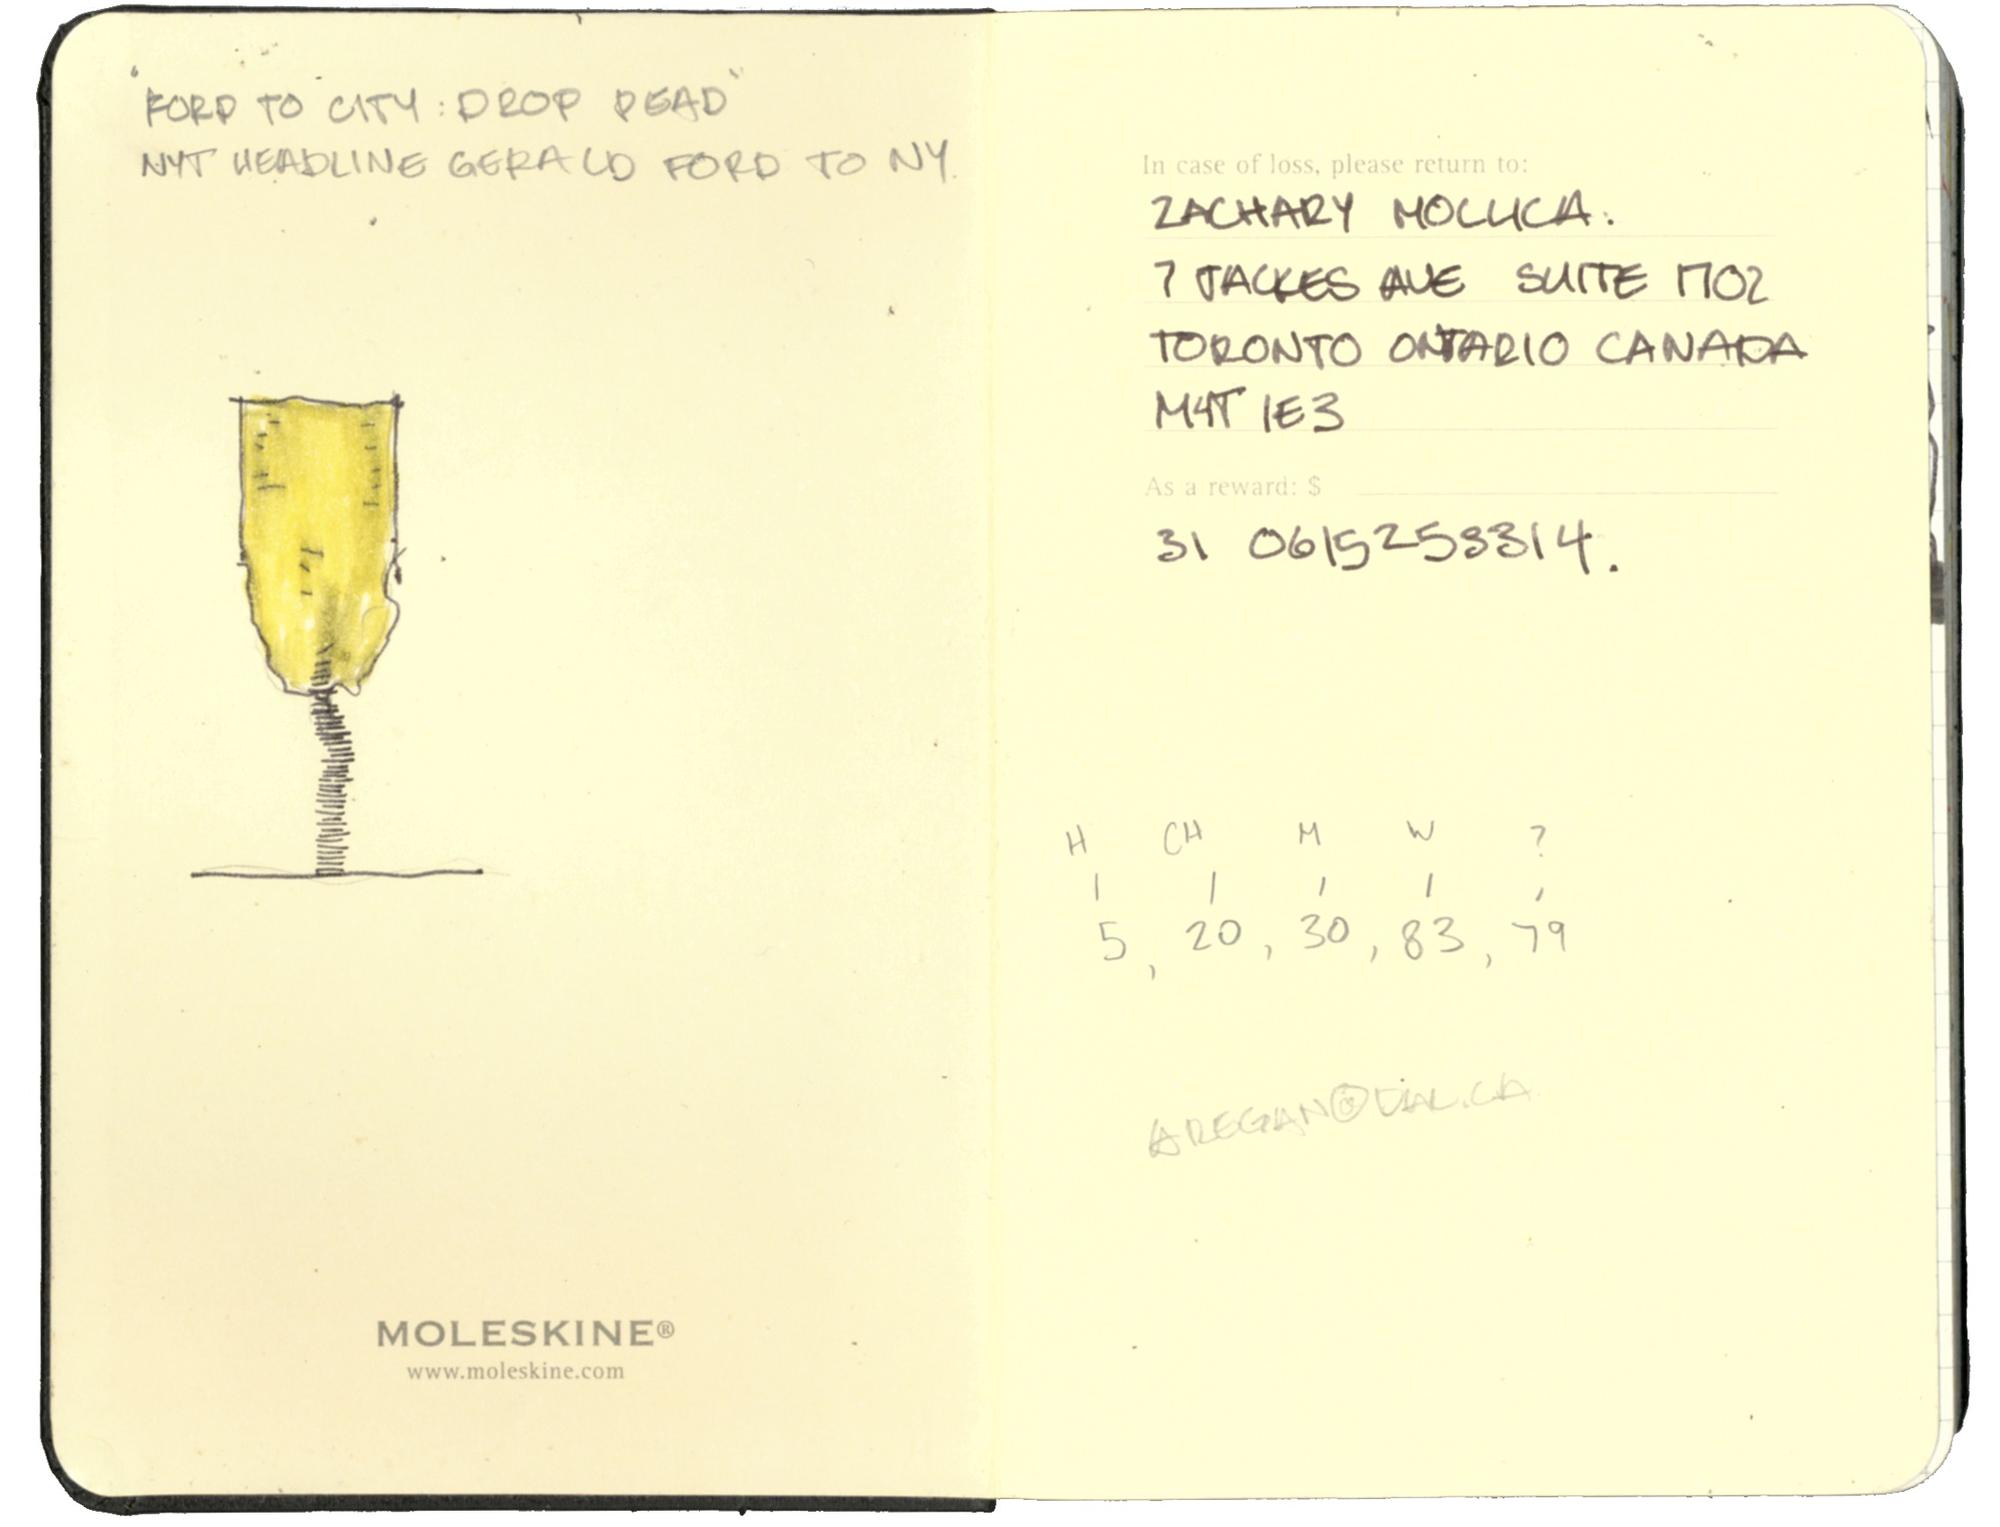 "FORD TO CITY: DROP DEAD"
NYT HEADLINE GERALD FORD TO NY.
MOLESKINE®
www.moleskine.com
In case of loss, please return to:
ZACHARY MOLLICA.
7 JACKES AVE SUITE 1702
TORONTO ONTARIO CANADA
M4T 1E3
As a reward: $
31 0615253314.
H CH M W ?
5, 20, 30, 83, 79
AREGAN@DAL.CA